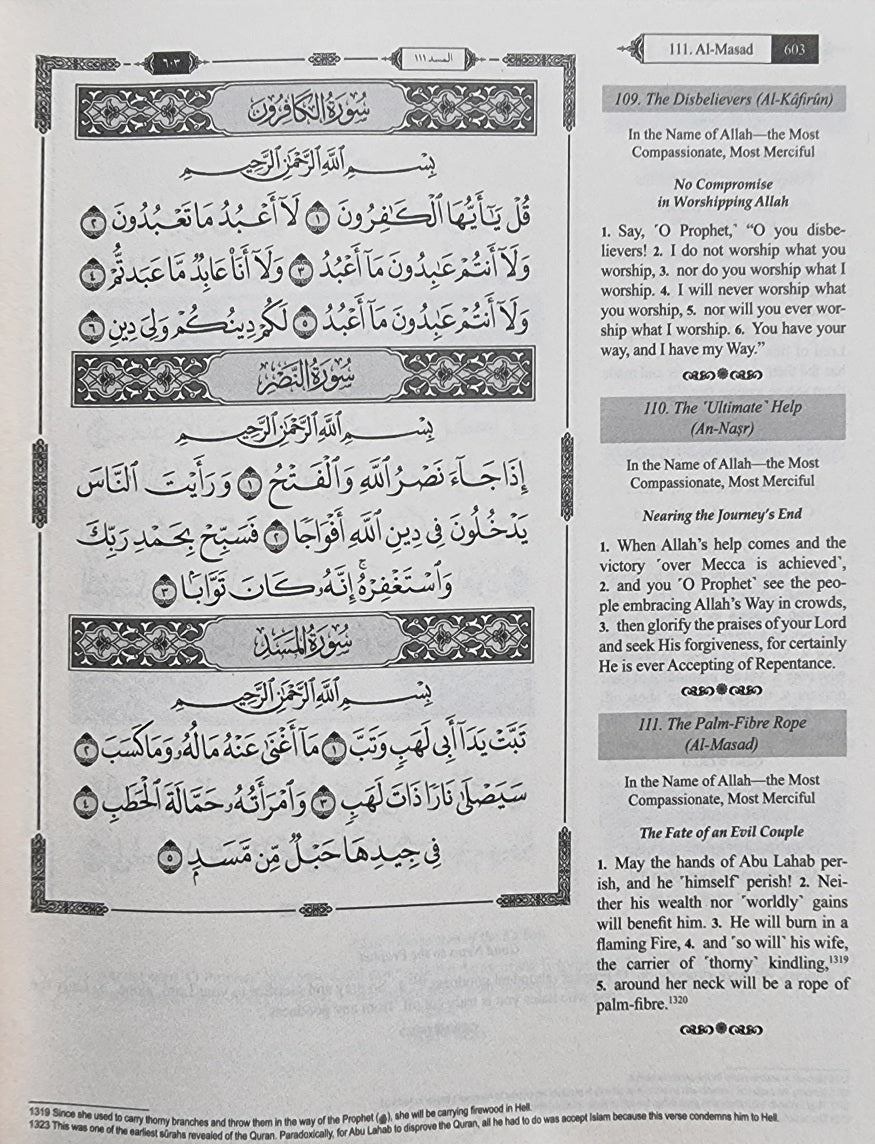 ٦٠٣
المسد ١١١
سُورَةُ الكَافِرُونَ
بِسْمِ اللَّهِ الرَّحْمَٰنِ الرَّحِيمِ
قُلْ يَٰٓأَيُّهَا ٱلْكَٰفِرُونَ ١ لَآ أَعْبُدُ مَا تَعْبُدُونَ ٢
وَلَآ أَنتُمْ عَٰبِدُونَ مَآ أَعْبُدُ ٣ وَلَآ أَنَا۠ عَابِدٌ مَّا عَبَدتُّمْ ٤
وَلَآ أَنتُمْ عَٰبِدُونَ مَآ أَعْبُدُ ٥ لَكُمْ دِينُكُمْ وَلِىَ دِينِ ٦
سُورَةُ النَّصْرِ
بِسْمِ اللَّهِ الرَّحْمَٰنِ الرَّحِيمِ
إِذَا جَآءَ نَصْرُ ٱللَّهِ وَٱلْفَتْحُ ١ وَرَأَيْتَ ٱلنَّاسَ
يَدْخُلُونَ فِى دِينِ ٱللَّهِ أَفْوَاجًا ٢ فَسَبِّحْ بِحَمْدِ رَبِّكَ
وَٱسْتَغْفِرْهُ ۚ إِنَّهُۥ كَانَ تَوَّابًۢا ٣
سُورَةُ المَسَدِ
بِسْمِ اللَّهِ الرَّحْمَٰنِ الرَّحِيمِ
تَبَّتْ يَدَآ أَبِى لَهَبٍ وَتَبَّ ١ مَآ أَغْنَىٰ عَنْهُ مَالُهُۥ وَمَا كَسَبَ ٢
سَيَصْلَىٰ نَارًا ذَاتَ لَهَبٍ ٣ وَٱمْرَأَتُهُۥ حَمَّالَةَ ٱلْحَطَبِ ٤
فِى جِيدِهَا حَبْلٌ مِّن مَّسَدٍۭ ٥
111. Al-Masad 603
109. The Disbelievers (Al-Kâfirûn)
In the Name of Allah—the Most
Compassionate, Most Merciful
No Compromise
in Worshipping Allah
1. Say, ˹O Prophet,˺ “O you disbe-
lievers! 2. I do not worship what you
worship, 3. nor do you worship what I
worship. 4. I will never worship what
you worship, 5. nor will you ever wor-
ship what I worship. 6. You have your
way, and I have my Way.”
110. The ˹Ultimate˺ Help
(An-Naṣr)
In the Name of Allah—the Most
Compassionate, Most Merciful
Nearing the Journey’s End
1. When Allah’s help comes and the
victory ˹over Mecca is achieved˺,
2. and you ˹O Prophet˺ see the peo-
ple embracing Allah’s Way in crowds,
3. then glorify the praises of your Lord
and seek His forgiveness, for certainly
He is ever Accepting of Repentance.
111. The Palm-Fibre Rope
(Al-Masad)
In the Name of Allah—the Most
Compassionate, Most Merciful
The Fate of an Evil Couple
1. May the hands of Abu Lahab per-
ish, and he ˹himself˺ perish! 2. Nei-
ther his wealth nor ˹worldly˺ gains
will benefit him. 3. He will burn in a
flaming Fire, 4. and ˹so will˺ his wife,
the carrier of ˹thorny˺ kindling,1319
5. around her neck will be a rope of
palm-fibre.1320
1319 Since she used to carry thorny branches and throw them in the way of the Prophet (ﷺ), she will be carrying firewood in Hell.
1323 This was one of the earliest sûrahs revealed of the Quran. Paradoxically, for Abu Lahab to disprove the Quran, all he had to do was accept Islam because this verse condemns him to Hell.